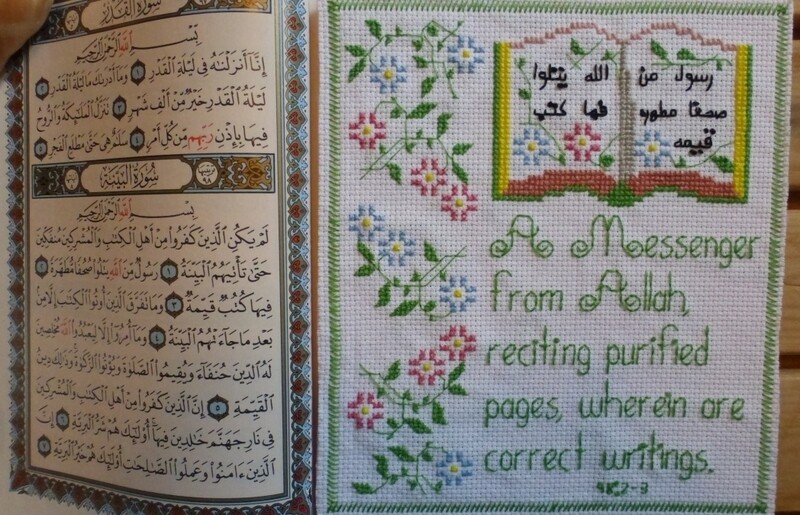 سُورَةُ الْقَدْرِ
بِسْمِ اللَّهِ الرَّحْمَٰنِ الرَّحِيمِ
إِنَّا أَنزَلْنَٰهُ فِى لَيْلَةِ الْقَدْرِ ١ وَمَا أَدْرَىٰكَ مَا لَيْلَةُ الْقَدْرِ ٢
لَيْلَةُ الْقَدْرِ خَيْرٌ مِّنْ أَلْفِ شَهْرٍ ٣ تَنَزَّلُ الْمَلَٰٓئِكَةُ وَالرُّوحُ
فِيهَا بِإِذْنِ رَبِّهِم مِّن كُلِّ أَمْرٍ ٤ سَلَٰمٌ هِىَ حَتَّىٰ مَطْلَعِ الْفَجْرِ ٥
سُورَةُ الْبَيِّنَةِ
بِسْمِ اللَّهِ الرَّحْمَٰنِ الرَّحِيمِ
لَمْ يَكُنِ الَّذِينَ كَفَرُوا مِنْ أَهْلِ الْكِتَٰبِ وَالْمُشْرِكِينَ مُنفَكِّينَ
حَتَّىٰ تَأْتِيَهُمُ الْبَيِّنَةُ ١ رَسُولٌ مِّنَ اللَّهِ يَتْلُوا صُحُفًا مُّطَهَّرَةً ٢
فِيهَا كُتُبٌ قَيِّمَةٌ ٣ وَمَا تَفَرَّقَ الَّذِينَ أُوتُوا الْكِتَٰبَ إِلَّا مِن
بَعْدِ مَا جَآءَتْهُمُ الْبَيِّنَةُ ٤ وَمَآ أُمِرُوٓا إِلَّا لِيَعْبُدُوا اللَّهَ مُخْلِصِينَ
لَهُ الدِّينَ حُنَفَآءَ وَيُقِيمُوا الصَّلَوٰةَ وَيُؤْتُوا الزَّكَوٰةَ وَذَٰلِكَ دِينُ
الْقَيِّمَةِ ٥ إِنَّ الَّذِينَ كَفَرُوا مِنْ أَهْلِ الْكِتَٰبِ وَالْمُشْرِكِينَ
فِى نَارِ جَهَنَّمَ خَٰلِدِينَ فِيهَآ أُولَٰٓئِكَ هُمْ شَرُّ الْبَرِيَّةِ ٦ إِنَّ
الَّذِينَ ءَامَنُوا وَعَمِلُوا الصَّٰلِحَٰتِ أُولَٰٓئِكَ هُمْ خَيْرُ الْبَرِيَّةِ ٧
رسول من الله يتلوا
صحفا مطهره فيها كتب
قيمه
A Messenger
from Allah,
reciting purified
pages, wherein are
correct writings.
98:2-3